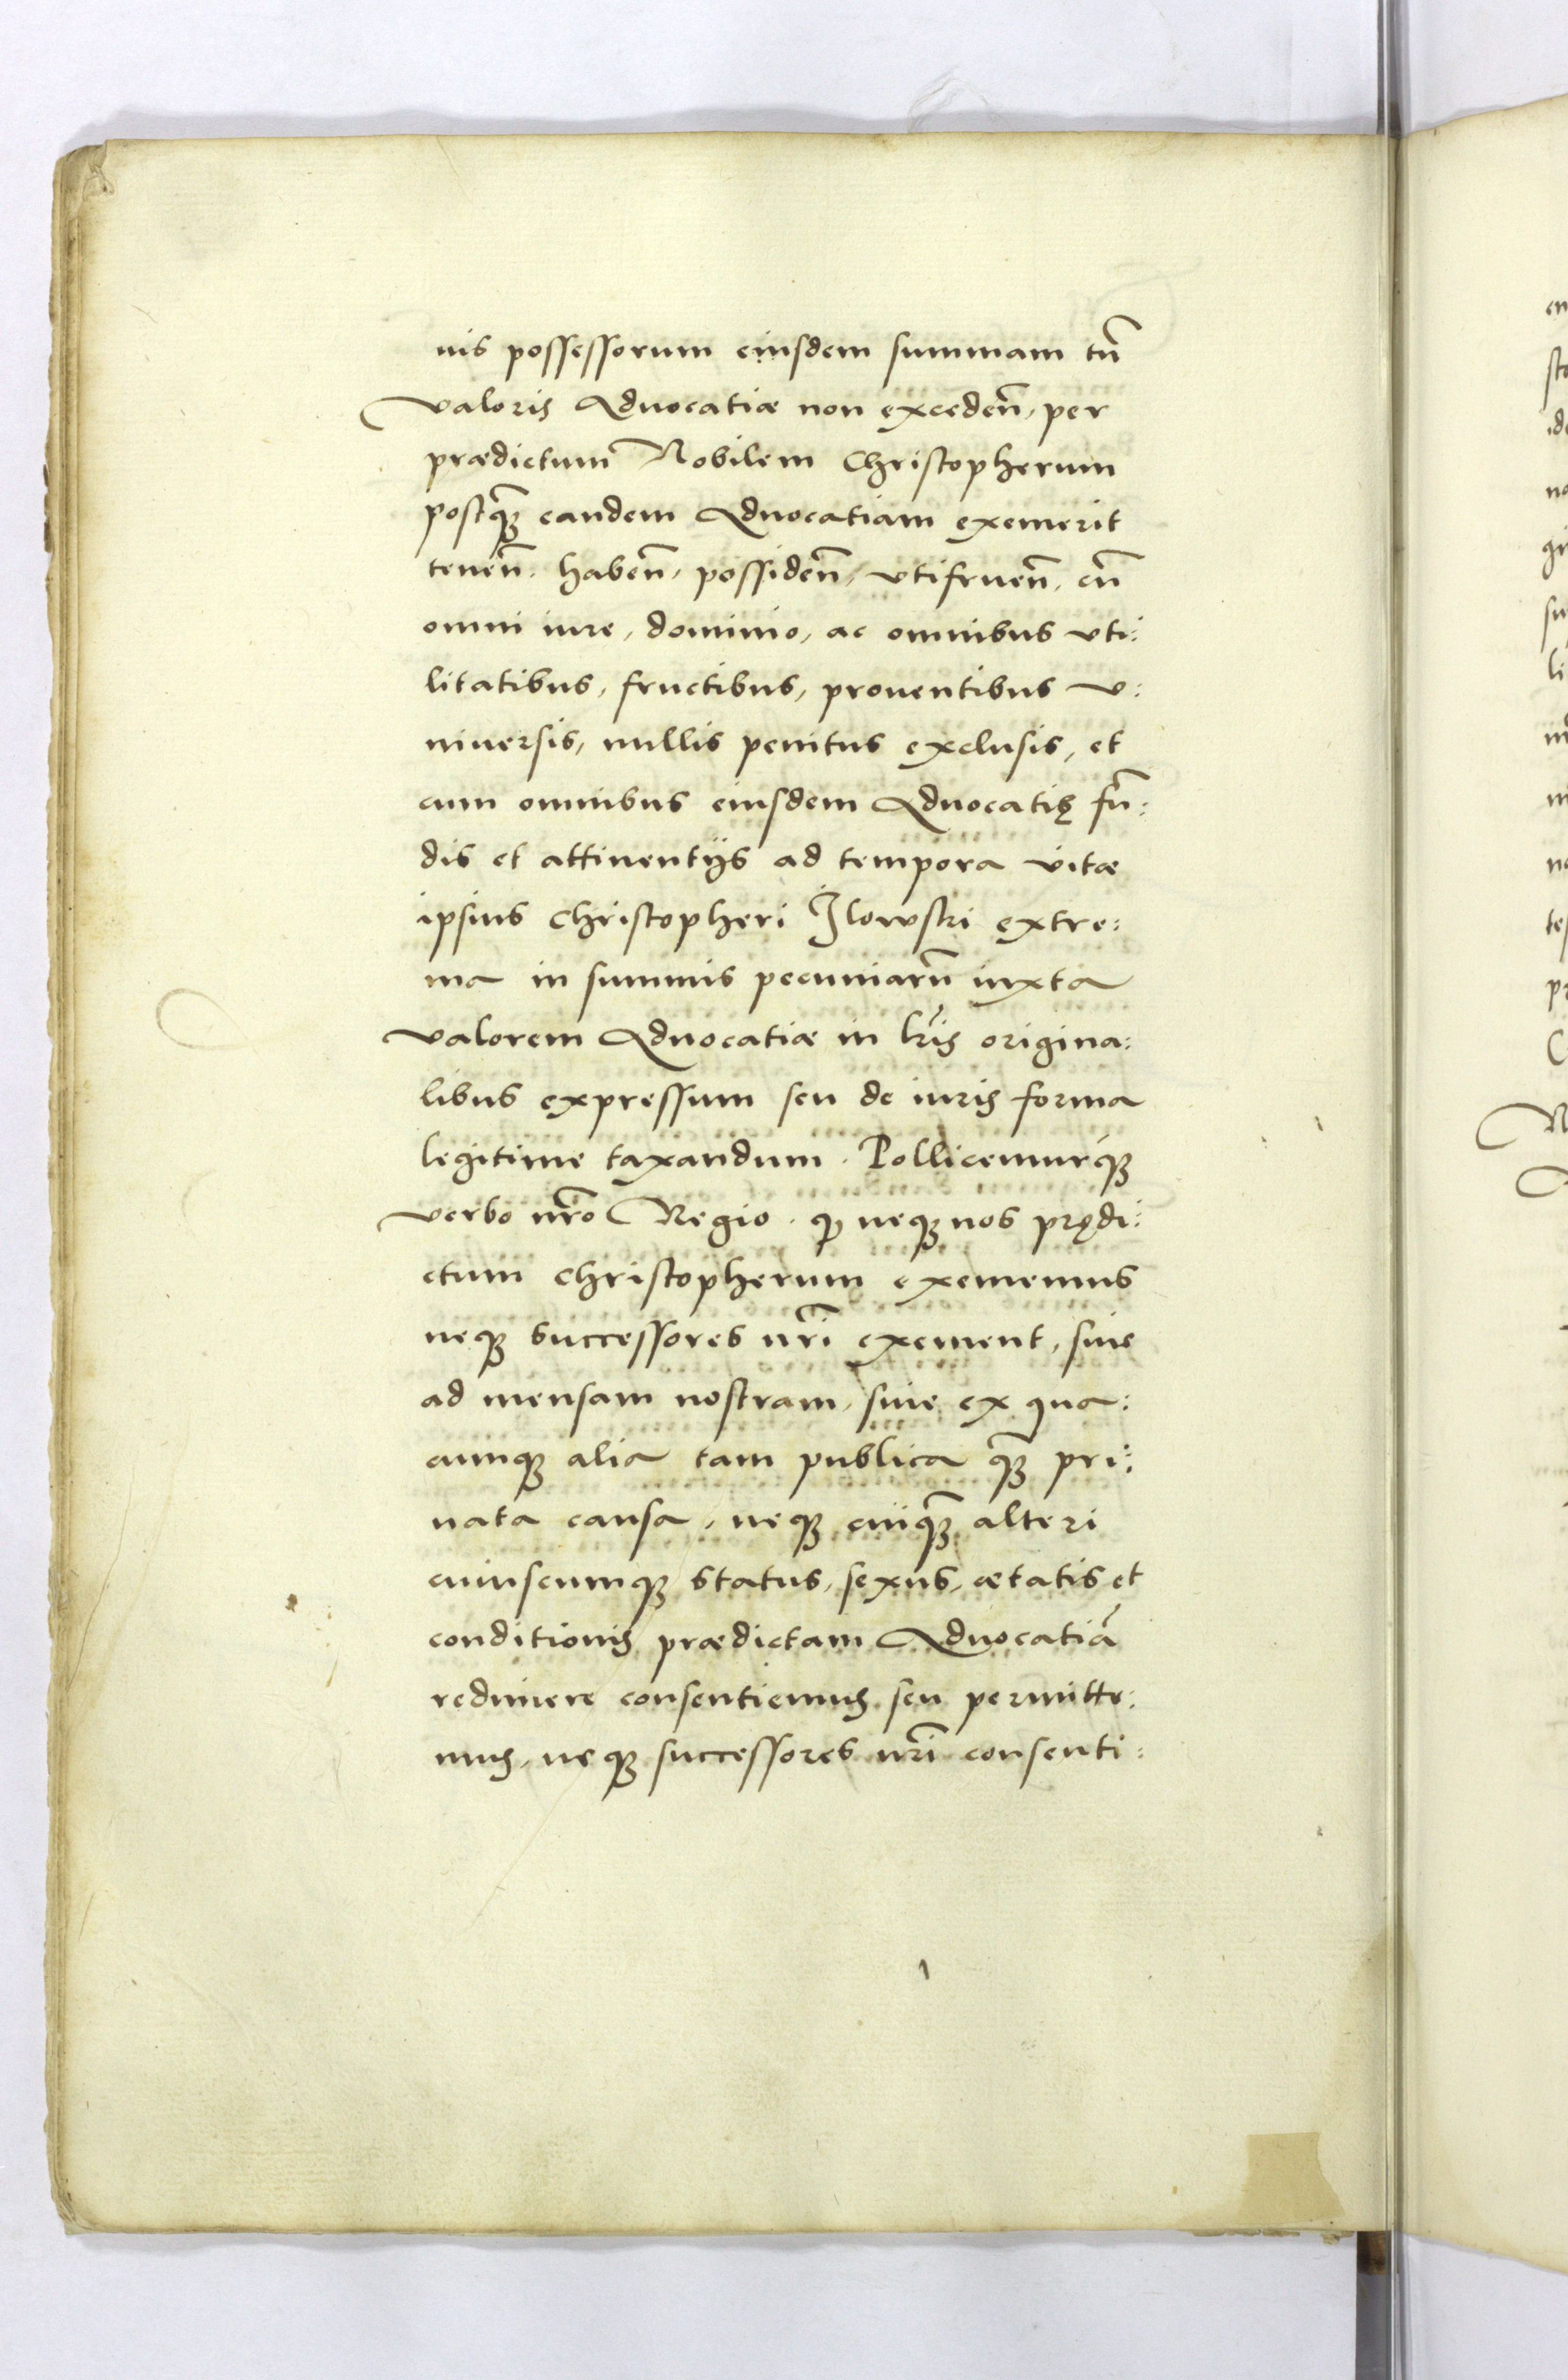 nis possessorum eiusdem summam tñ
valoris Aduocatiæ non exceden̄, per
prædictum Nobilem Christopherum
postq̃ȝ eandem Aduocatiam exemerit
tenen̄. haben̄, possiden̄, vtifruen̄, cū
omni iure, dominio, ac omnibus vti:
litatibus, fructibus, prouentibus v:
niuersis, nullis penitus exclusis, et
cum omnibus eiusdem Aduocatię fū:
dis et attinentijs ad tempora vitæ
ipsius Christopheri Jlowski extre:
ma in summis pecuniarū iuxta
valorem Aduocatiæ in lr̃is origina:
libus expressum seu de iuris forma
legitime taxandum. Pollicemurq́ȝ
verbo nr̃o Regio. ꝙ neqȝ nos prędi:
ctum Christopherum exememus
neqȝ successores nr̃i exement, siue
ad mensam nostram, siue ex qua:
cumqȝ alia tam publica q̃ȝ pri:
uata causa, neqȝ cuiq̃ȝ alteri
cuiuscumqȝ status, sexus, ætatis et
conditionis prædictam Aduocatiā
redimere consentiemus seu permitte:
mus, neqȝ successores nr̃i consenti: